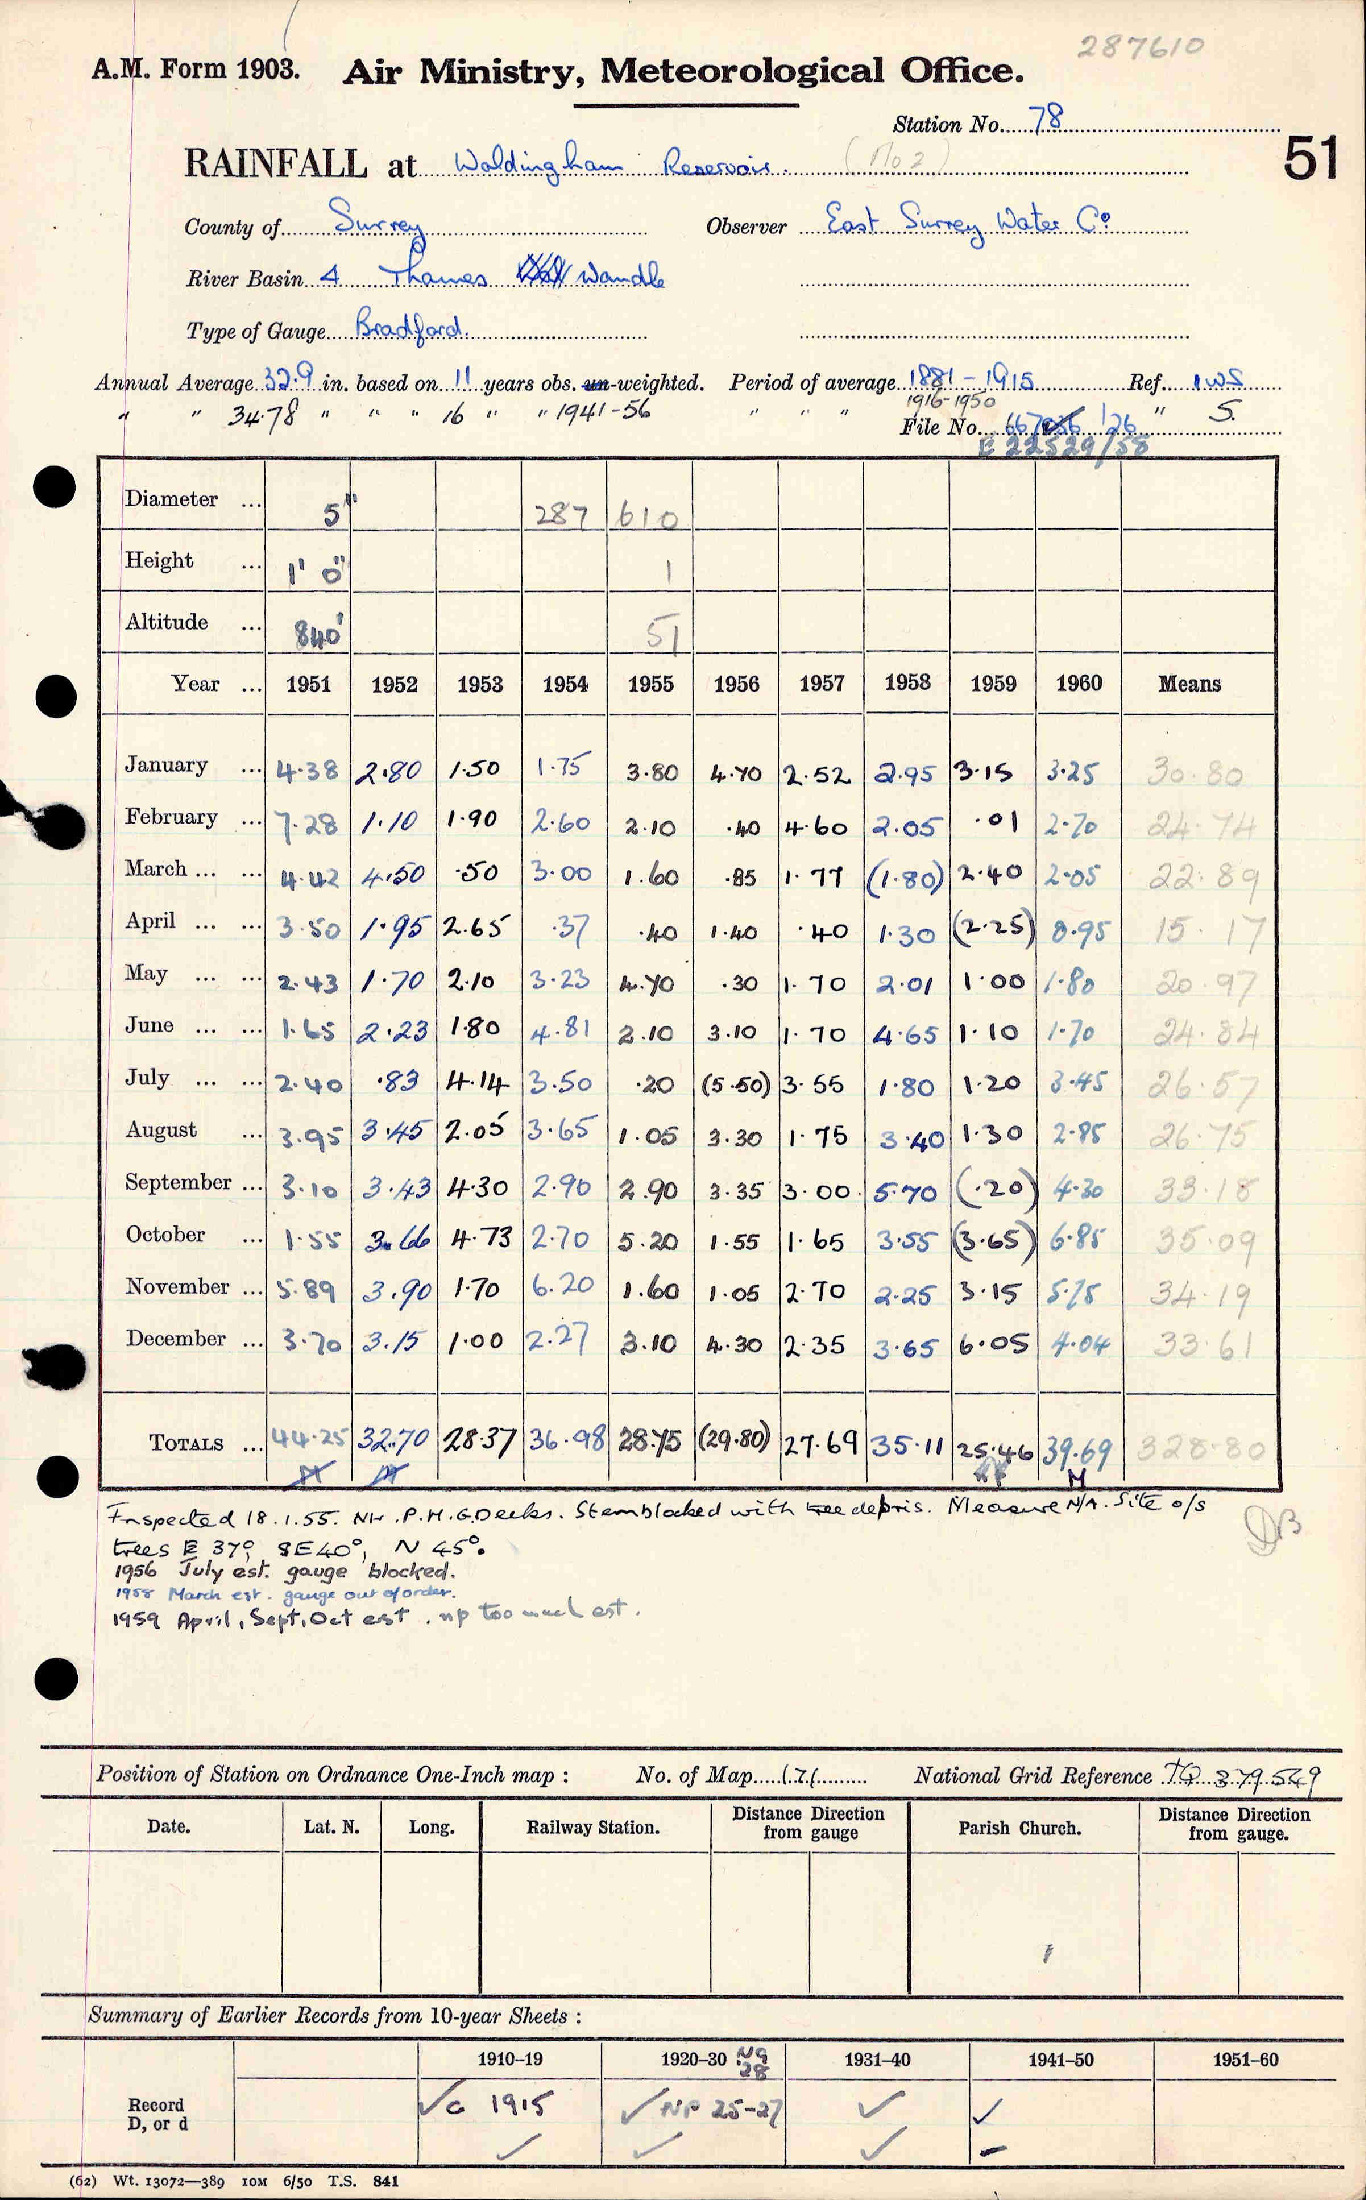 287610
A.M. Form 1903. Air Ministry, Meteorological Office.
Station No. 78
51
RAINFALL at Woldingham Reservoir. (No 2)
County of Surrey Observer East Surrey Water Co
River Basin 4 Thames Wandle
Type of Gauge Bradford.
Annual Average 32.9 in. based on 11 years obs. un-weighted. Period of average 1881-1915 Ref. IWS
" " 34.78 " " " 16 " " 1941-56 " " " 1916-1950 " S.
File No. /26
E 22529/58
Diameter ... 5" 287 610
Height ... 1' 0" 1
Altitude ... 840' 51
Year ... 1951 1952 1953 1954 1955 1956 1957 1958 1959 1960 Means
January ... 4.38 2.80 1.50 1.75 3.80 4.70 2.52 2.95 3.15 3.25 30.80
February ... 7.28 1.10 1.90 2.60 2.10 .40 4.60 2.05 .01 2.70 24.74
March ... ... 4.42 4.50 .50 3.00 1.60 .85 1.77 (1.80) 2.40 2.05 22.89
April ... ... 3.50 1.95 2.65 .37 .40 1.40 .40 1.30 (2.25) 0.95 15.17
May ... ... 2.43 1.70 2.10 3.23 4.70 .30 1.70 2.01 1.00 1.80 20.97
June ... ... 1.65 2.23 1.80 4.81 2.10 3.10 1.70 4.65 1.10 1.70 24.84
July ... ... 2.40 .83 4.14 3.50 .20 (5.50) 3.55 1.80 1.20 3.45 26.57
August ... 3.95 3.45 2.05 3.65 1.05 3.30 1.75 3.40 1.30 2.85 26.75
September ... 3.10 3.43 4.30 2.90 2.90 3.35 3.00 5.70 (.20) 4.30 33.18
October ... 1.55 3.66 4.73 2.70 5.20 1.55 1.65 3.55 (3.65) 6.85 35.09
November ... 5.89 3.90 1.70 6.20 1.60 1.05 2.70 2.25 3.15 5.75 34.19
December ... 3.70 3.15 1.00 2.27 3.10 4.30 2.35 3.65 6.05 4.04 33.61
TOTALS ... 44.25 32.70 28.37 36.98 28.75 (29.80) 27.69 35.11 25.46 39.69 328.80
M
Inspected 18.1.55. NW. P.H.G. Deeks. Stem blocked with tree debris. Measure N/A. Site o/s
trees E 37°, SE 40°, N 45°.
DB
1956 July est. gauge blocked.
1958 March est. gauge out of order.
1959 April, Sept, Oct est. np too much est.
Position of Station on Ordnance One-Inch map : No. of Map 171 National Grid Reference TQ 379549
Date. Lat. N. Long. Railway Station. Distance Direction from gauge Parish Church. Distance Direction from gauge.
Summary of Earlier Records from 10-year Sheets :
1910-19 1920-30 N9 28 1931-40 1941-50 1951-60
Record ✓ c 1915 ✓ NP 25-27 ✓ ✓
D, or d ✓ ✓ ✓ –
(62) Wt. 13072—389 10M 6/50 T.S. 841